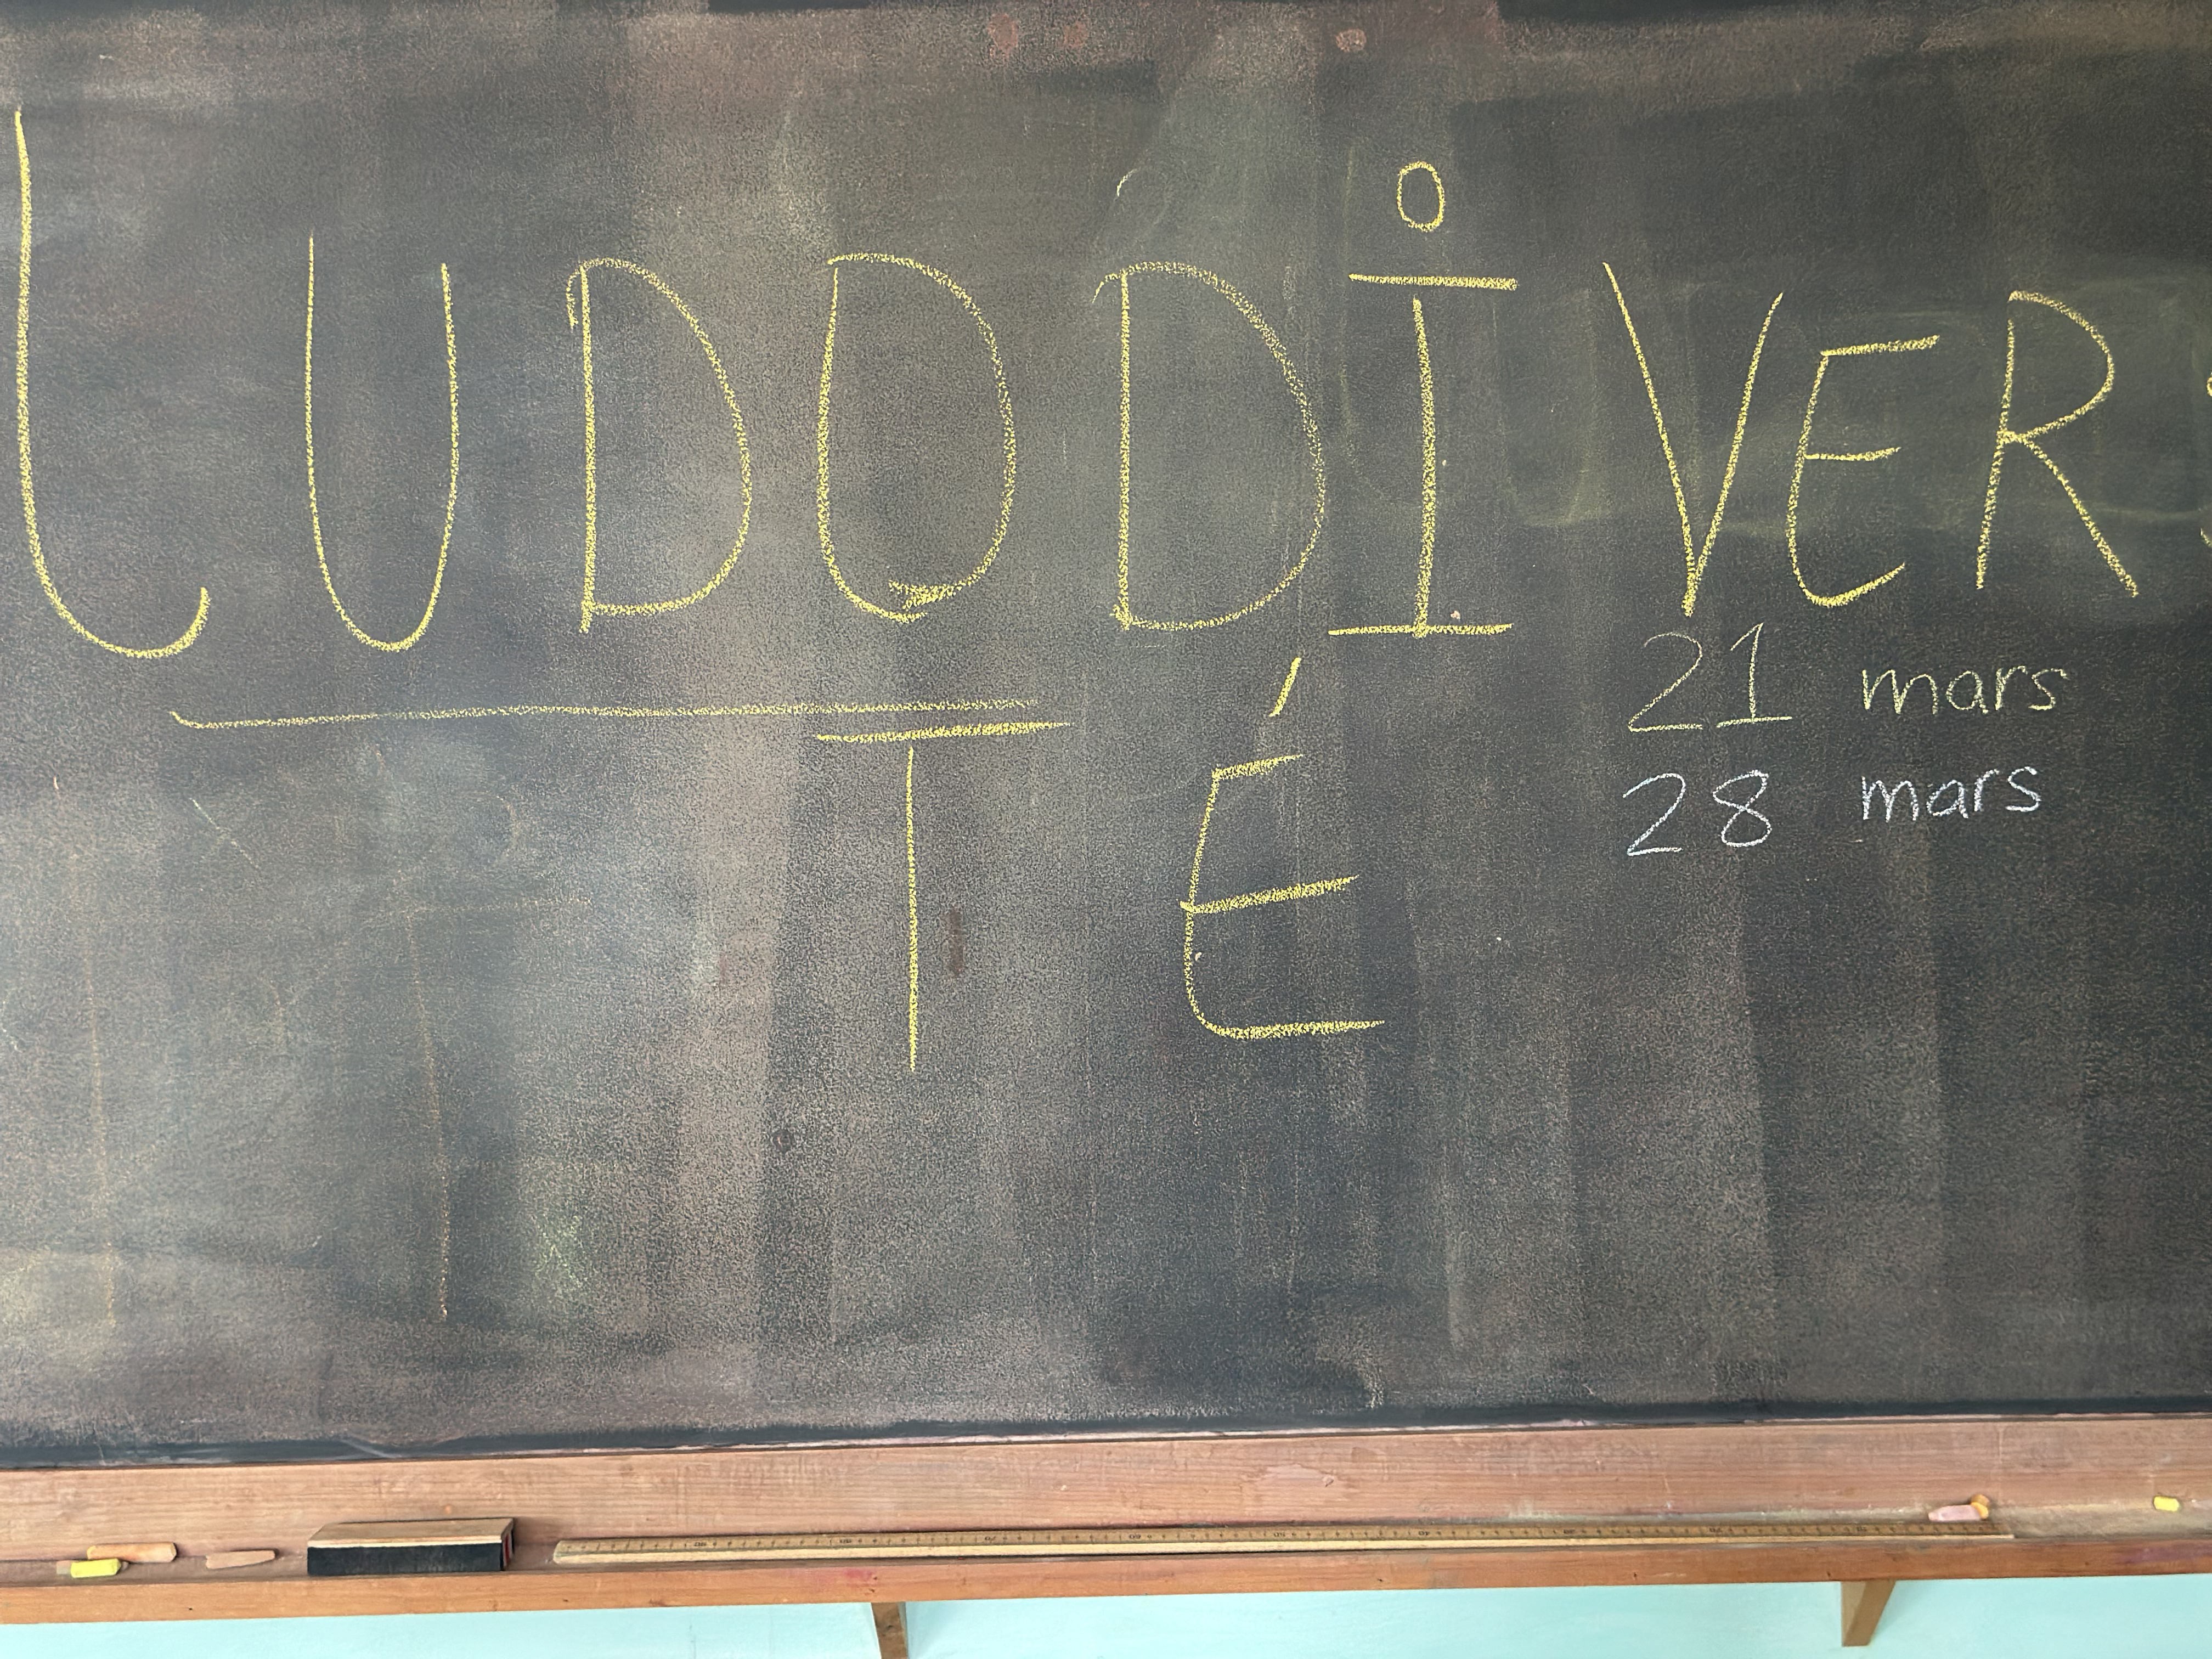 LUDODIVERS
TÉ
21 mars
28 mars